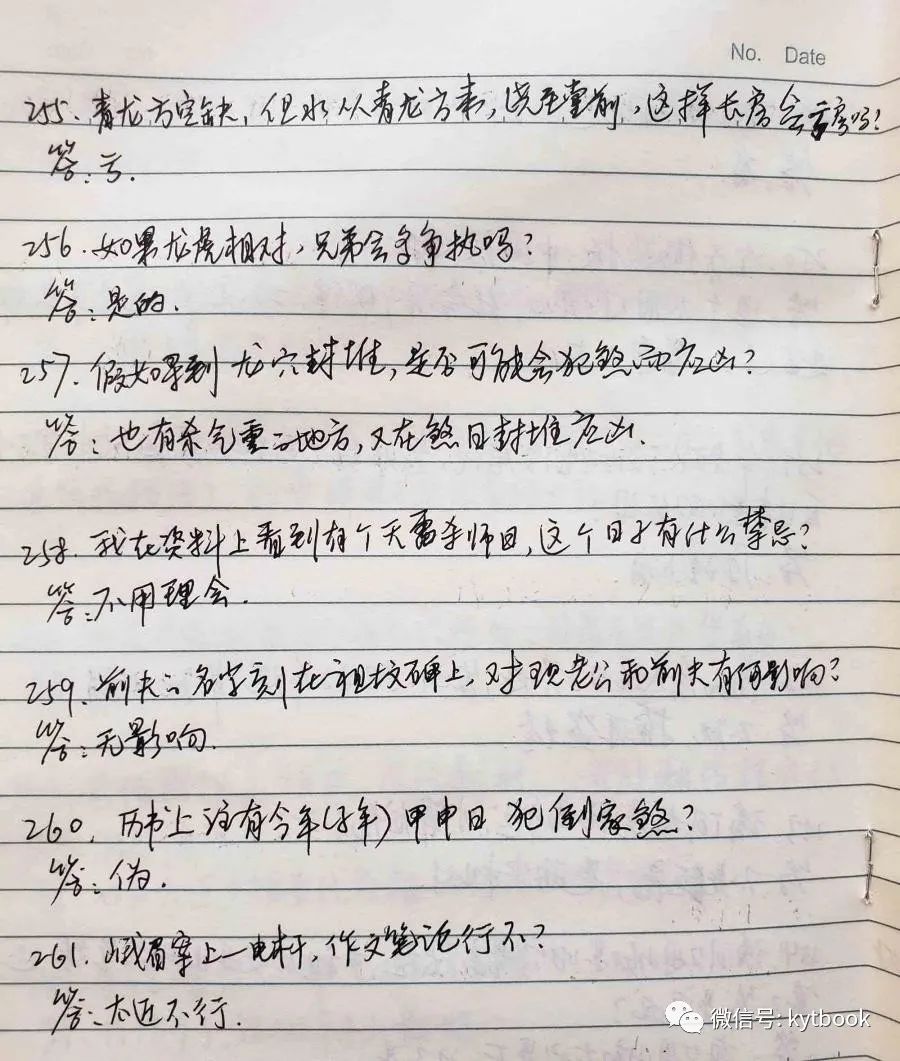 No. Date
255. 青龙方空缺，但水从青龙方来，绕至堂前，这样长房会亏房吗？
答：亏.
256. 如果龙虎相对，兄弟会多争执吗？
答：是的.
257. 假如果到龙穴封堆，是否可能会犯煞而应凶？
答：也有杀气重之地方，又在煞日封堆应凶.
258. 我在资料上看到有个天雷杀师日，这个日子有什么禁忌？
答：不用理会.
259. 前夫之名字刻在祖坟碑上，对现老公和前夫有何影响？
答：无影响.
260. 历书上注有今年(子年)甲申日 犯倒家煞？
答：伪.
261. 峨眉案上一电杆，作文笔论行不？
答：太近不行.
微信号: kytbook